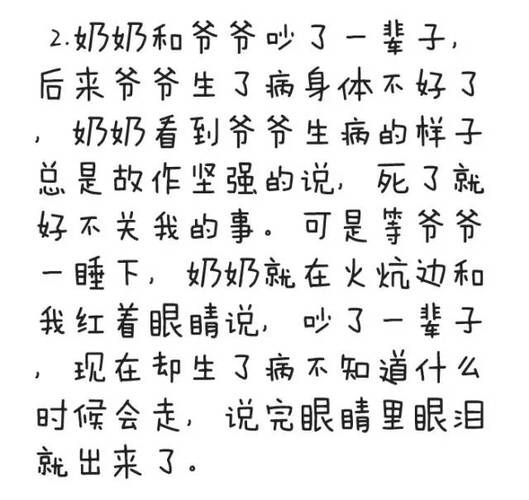 2.奶奶和爷爷吵了一辈子,
后来爷爷生了病身体不好了
,奶奶看到爷爷生病的样子
总是故作坚强的说,死了就
好不关我的事。可是等爷爷
一睡下,奶奶就在火炕边和
我红着眼睛说,吵了一辈子
,现在却生了病不知道什么
时候会走,说完眼睛里眼泪
就出来了。